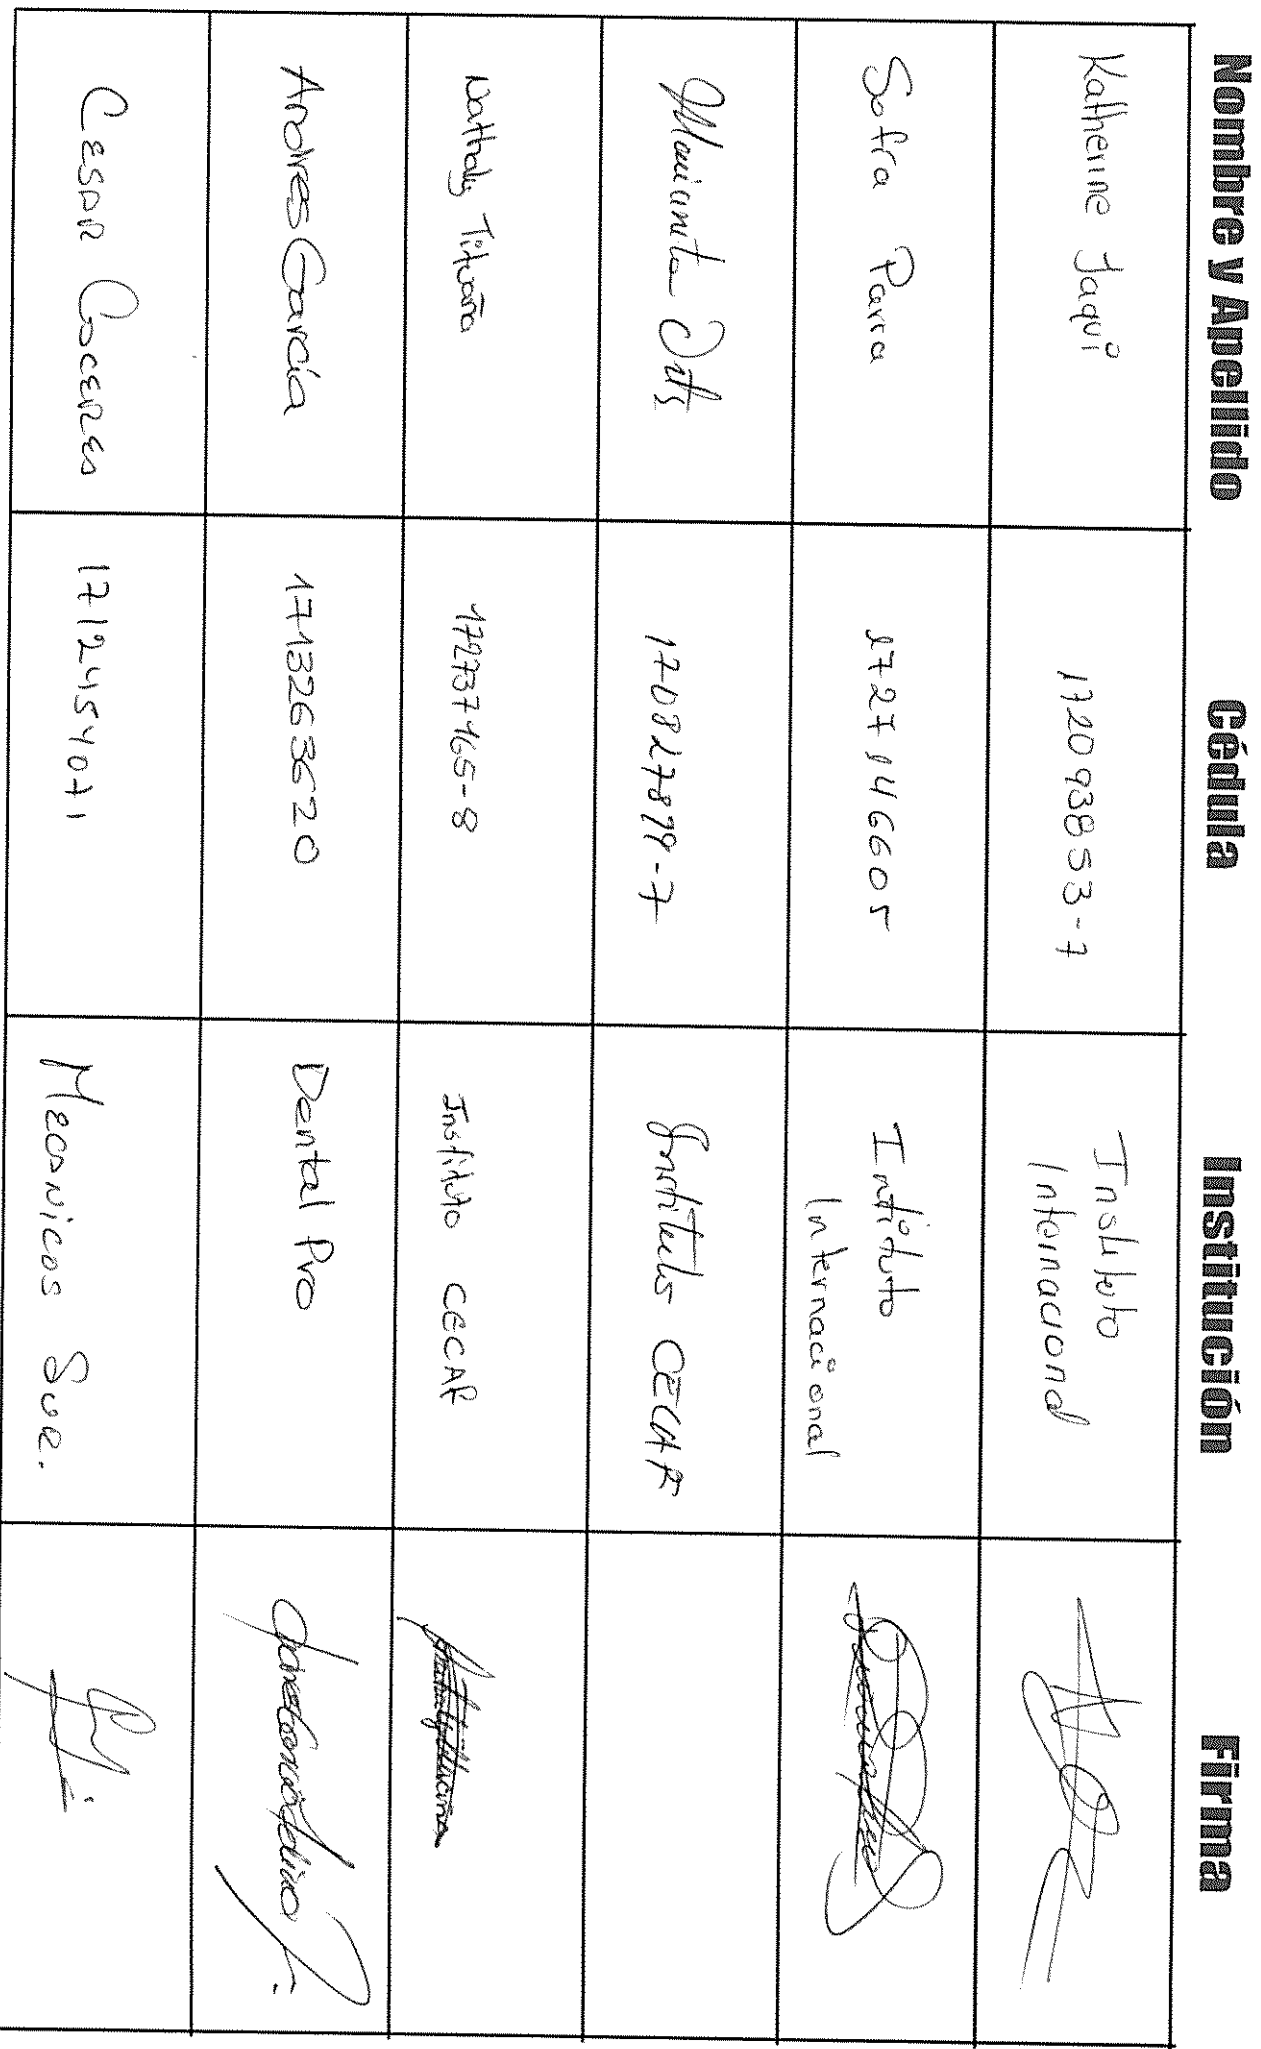 Nombre y Apellido Cédula Institución Firma
Katherine Jaqui 172093853-7 Instituto
Internacional
Sofia Parra 1727146605 Intituto
Internacional
Marianita Ortis 170827879-7 Instituto CECAP
Nathaly Tituaña 172737165-8 Instituto CECAP
Andres García 1713263620 Dental Pro
Cesar Caceres 1712454071 Mecanicos Sur.